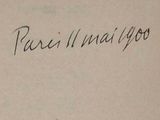 Paris 11 mai 1900